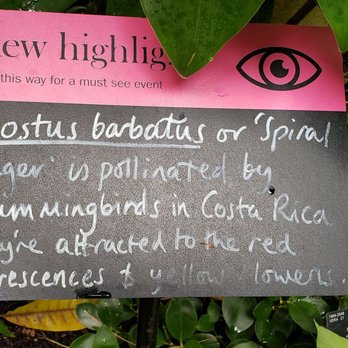 new highlig
this way for a must see event
ostus barbatus or 'Spiral
ger' is pollinated by
ummingbirds in Costa Rica
y're attracted to the red
rescences & yellow lowers.